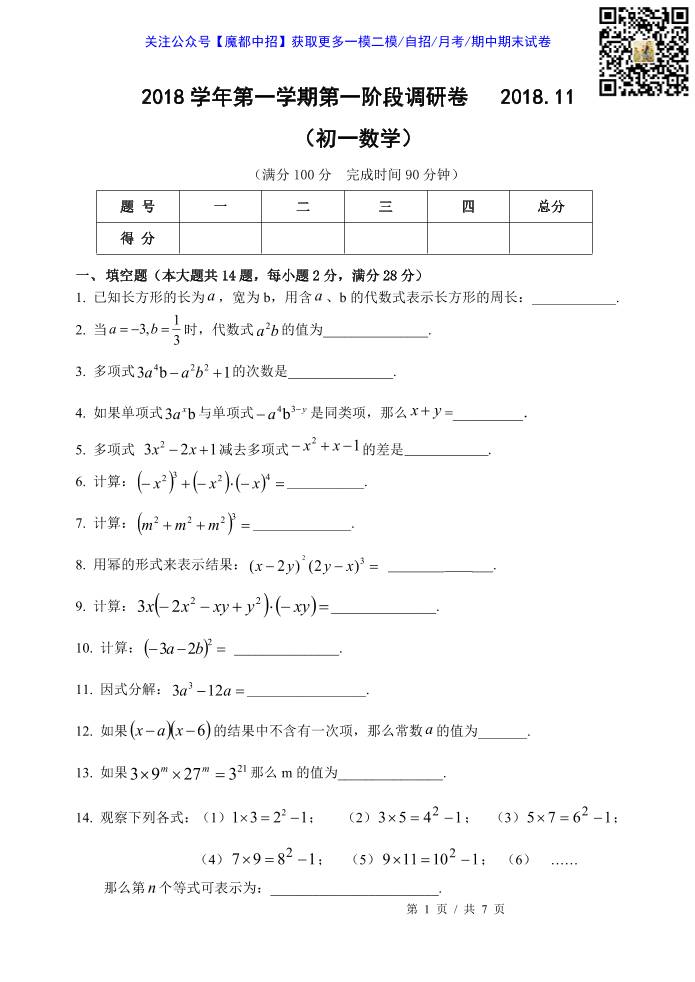 关注公众号【魔都中招】获取更多一模二模/自招/月考/期中期末试卷
2018 学年第一学期第一阶段调研卷 2018.11
（初一数学）
（满分 100 分 完成时间 90 分钟）
题 号 一 二 三 四 总分
得 分
一、填空题（本大题共 14 题，每小题 2 分，满分 28 分）
1. 已知长方形的长为 a，宽为 b，用含 a、b 的代数式表示长方形的周长：____________.
2. 当 a = −3, b = 1/3 时，代数式 a²b 的值为_______________.
3. 多项式 3a⁴b − a²b² + 1 的次数是_______________.
4. 如果单项式 3aˣb 与单项式 − a⁴b³⁻ʸ 是同类项，那么 x + y =__________.
5. 多项式 3x² − 2x + 1 减去多项式 − x² + x − 1 的差是____________.
6. 计算：(− x²)³ + (− x²)·(− x)⁴ = ___________.
7. 计算：(m² + m² + m²)³ = ______________.
8. 用幂的形式来表示结果：(x − 2y)² (2y − x)³ = _______________.
9. 计算：3x(− 2x² − xy + y²)·(− xy) = _______________.
10. 计算：(− 3a − 2b)² = _______________.
11. 因式分解：3a³ − 12a = _________________.
12. 如果 (x − a)(x − 6) 的结果中不含有一次项，那么常数 a 的值为_______.
13. 如果 3 × 9ᵐ × 27ᵐ = 3²¹ 那么 m 的值为_______________.
14. 观察下列各式：（1）1×3 = 2² − 1； （2）3×5 = 4² − 1； （3）5×7 = 6² − 1；
（4）7×9 = 8² − 1； （5）9×11 = 10² − 1； （6） ……
那么第 n 个等式可表示为：________________________.
第 1 页 / 共 7 页